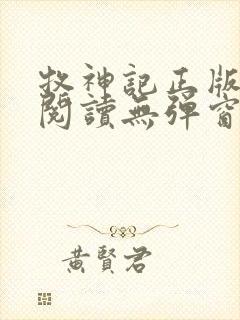 牧神記正版
閱讀無彈窗
黃賢君